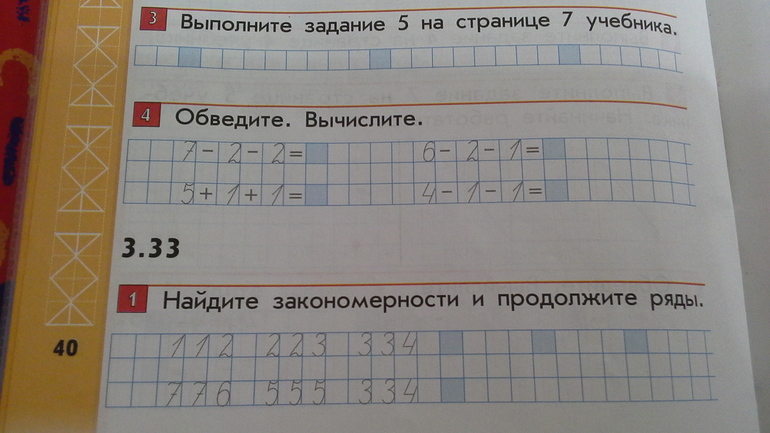 3 Выполните задание 5 на странице 7 учебника.
4 Обведите. Вычислите.
7-2-2= 6-2-1=
5+1+1= 4-1-1=
3.33
1 Найдите закономерности и продолжите ряды.
40
112 223 334
776 555 334